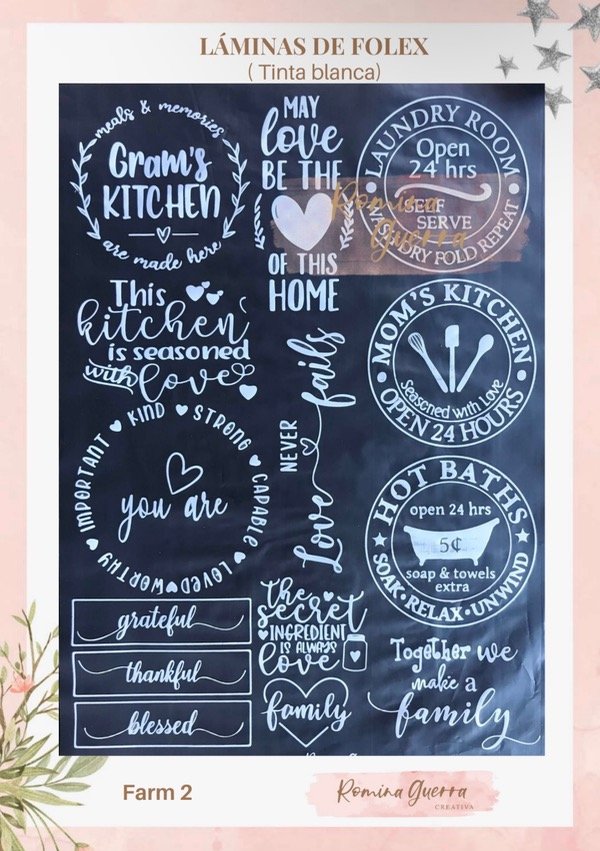 LÁMINAS DE FOLEX
( Tinta blanca)
meals & memories
Gram's
KITCHEN
are made here
MAY
love
BE THE
OF THIS
HOME
LAUNDRY ROOM
Open
24 hrs
SELF
SERVE
WASH DRY FOLD REPEAT
Romina
Guerra
This
kitchen
is seasoned
with love
NEVER
Love fails
MOM'S KITCHEN
Seasoned with Love
OPEN 24 HOURS
IMPORTANT KIND STRONG CAPABLE LOVED WORTHY
you are
HOT BATHS
open 24 hrs
5¢
soap & towels
extra
SOAK • RELAX • UNWIND
grateful
thankful
blessed
the
secret
INGREDIENT
IS ALWAYS
love
family
Together we
make a
family
Farm 2
Romina Guerra
CREATIVA